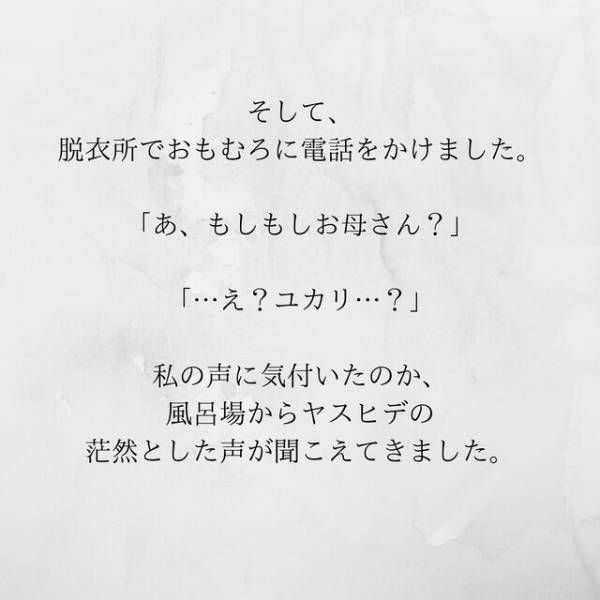 そして、
脱衣所でおもむろに電話をかけました。
「あ、もしもしお母さん？」
「…え？ユカリ…？」
私の声に気付いたのか、
風呂場からヤスヒデの
茫然とした声が聞こえてきました。